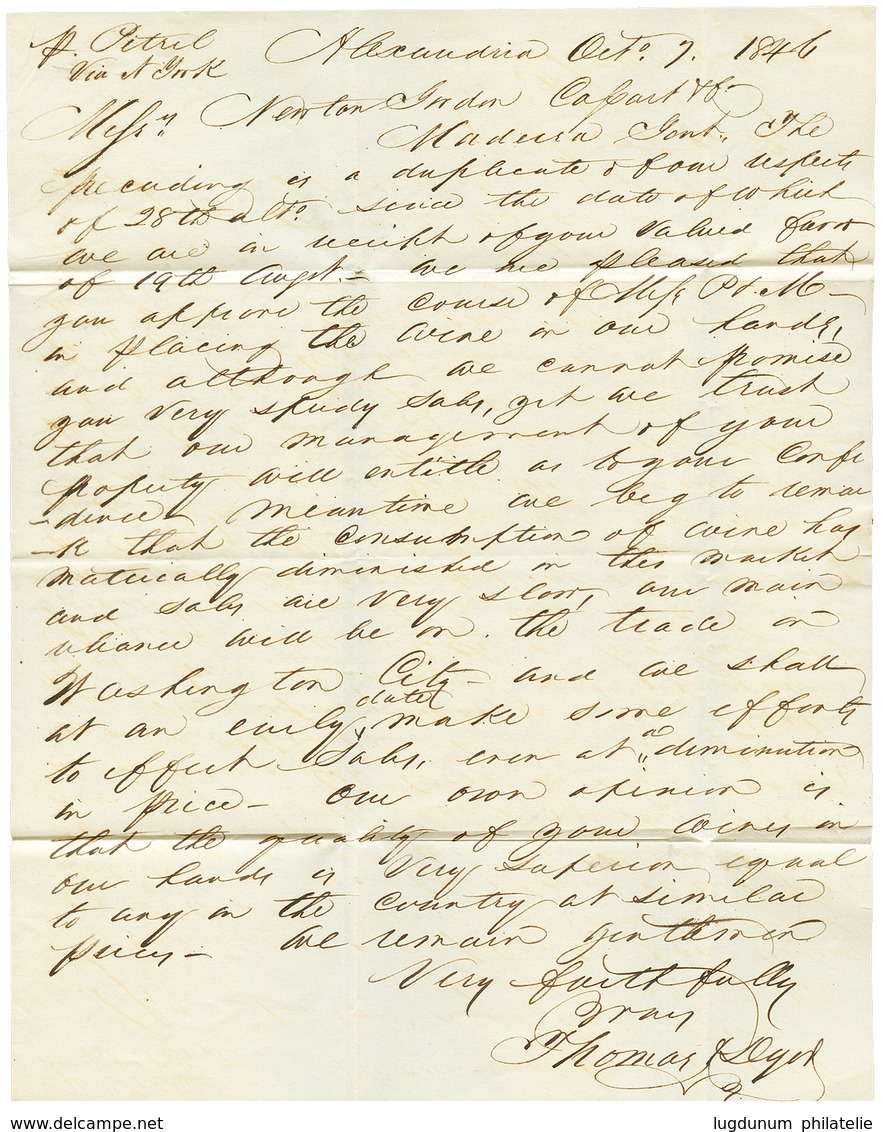 p. Petrel Alexandria Octo. 7. 1846
Via N York
Messrs Newton Gordon Cossart & Co
Madeira Gent,, The
preceeding is a duplicate of our respects
of 28th ulto. since the date of which
we are in receipt of your valued favor
of 19th Augst. – We are pleased that
you approve the course of Messrs P & M –
in placing the wine in our hands,
and although we cannot promise
you very speedy sales, yet we trust
that our management of your
property will entitle us to your Confi
-dence – Meantime we beg to remar
-k that the Consumption of wine has
materially diminished in this market
and sales are very slow, our main
reliance will be on the trade in
Washington City – and we shall
at an early date make some efforts
to effect Sales, even at a diminution
in price – Our own opinion is
that the quality of your wines in
our hands is very superior, equal
to any in the Country at similar
prices – We remain gentlemen
Very faithfully
Yrs
Thomas & Dyer
delcampe.net lugdunum philatelie